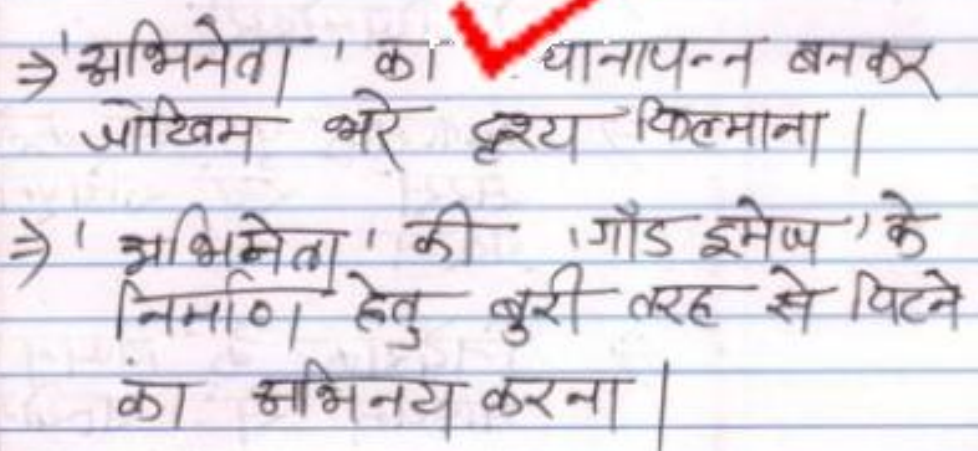 ⇒ 'अभिनेता' का थानापन्न बनकर
जोखिम भरे दृश्य फिल्माना।
⇒ 'अभिनेता' की 'गॉड इमेज' के
निर्माण हेतु बुरी तरह से पिटने
का अभिनय करना।